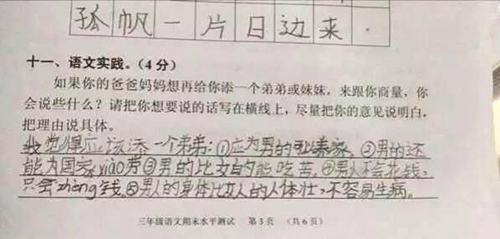 孤帆一片日边来.
十一、语文实践。(4分)
如果你的爸爸妈妈想再给你添一个弟弟或妹妹,来跟你商量,你
会说些什么?请把你想要说的话写在横线上,尽量把你的意见说明白,
把理由说具体。
我觉得应该添一个弟弟:①应为男的可以养家,②男的还
能为国家xiào劳③男的比女的能吃苦,④男人不会花钱,
只会zhèng钱,⑤男人的身体比女人的人体壮,不容易生病。
三年级语文期末水平测试 第3页 (共6页)